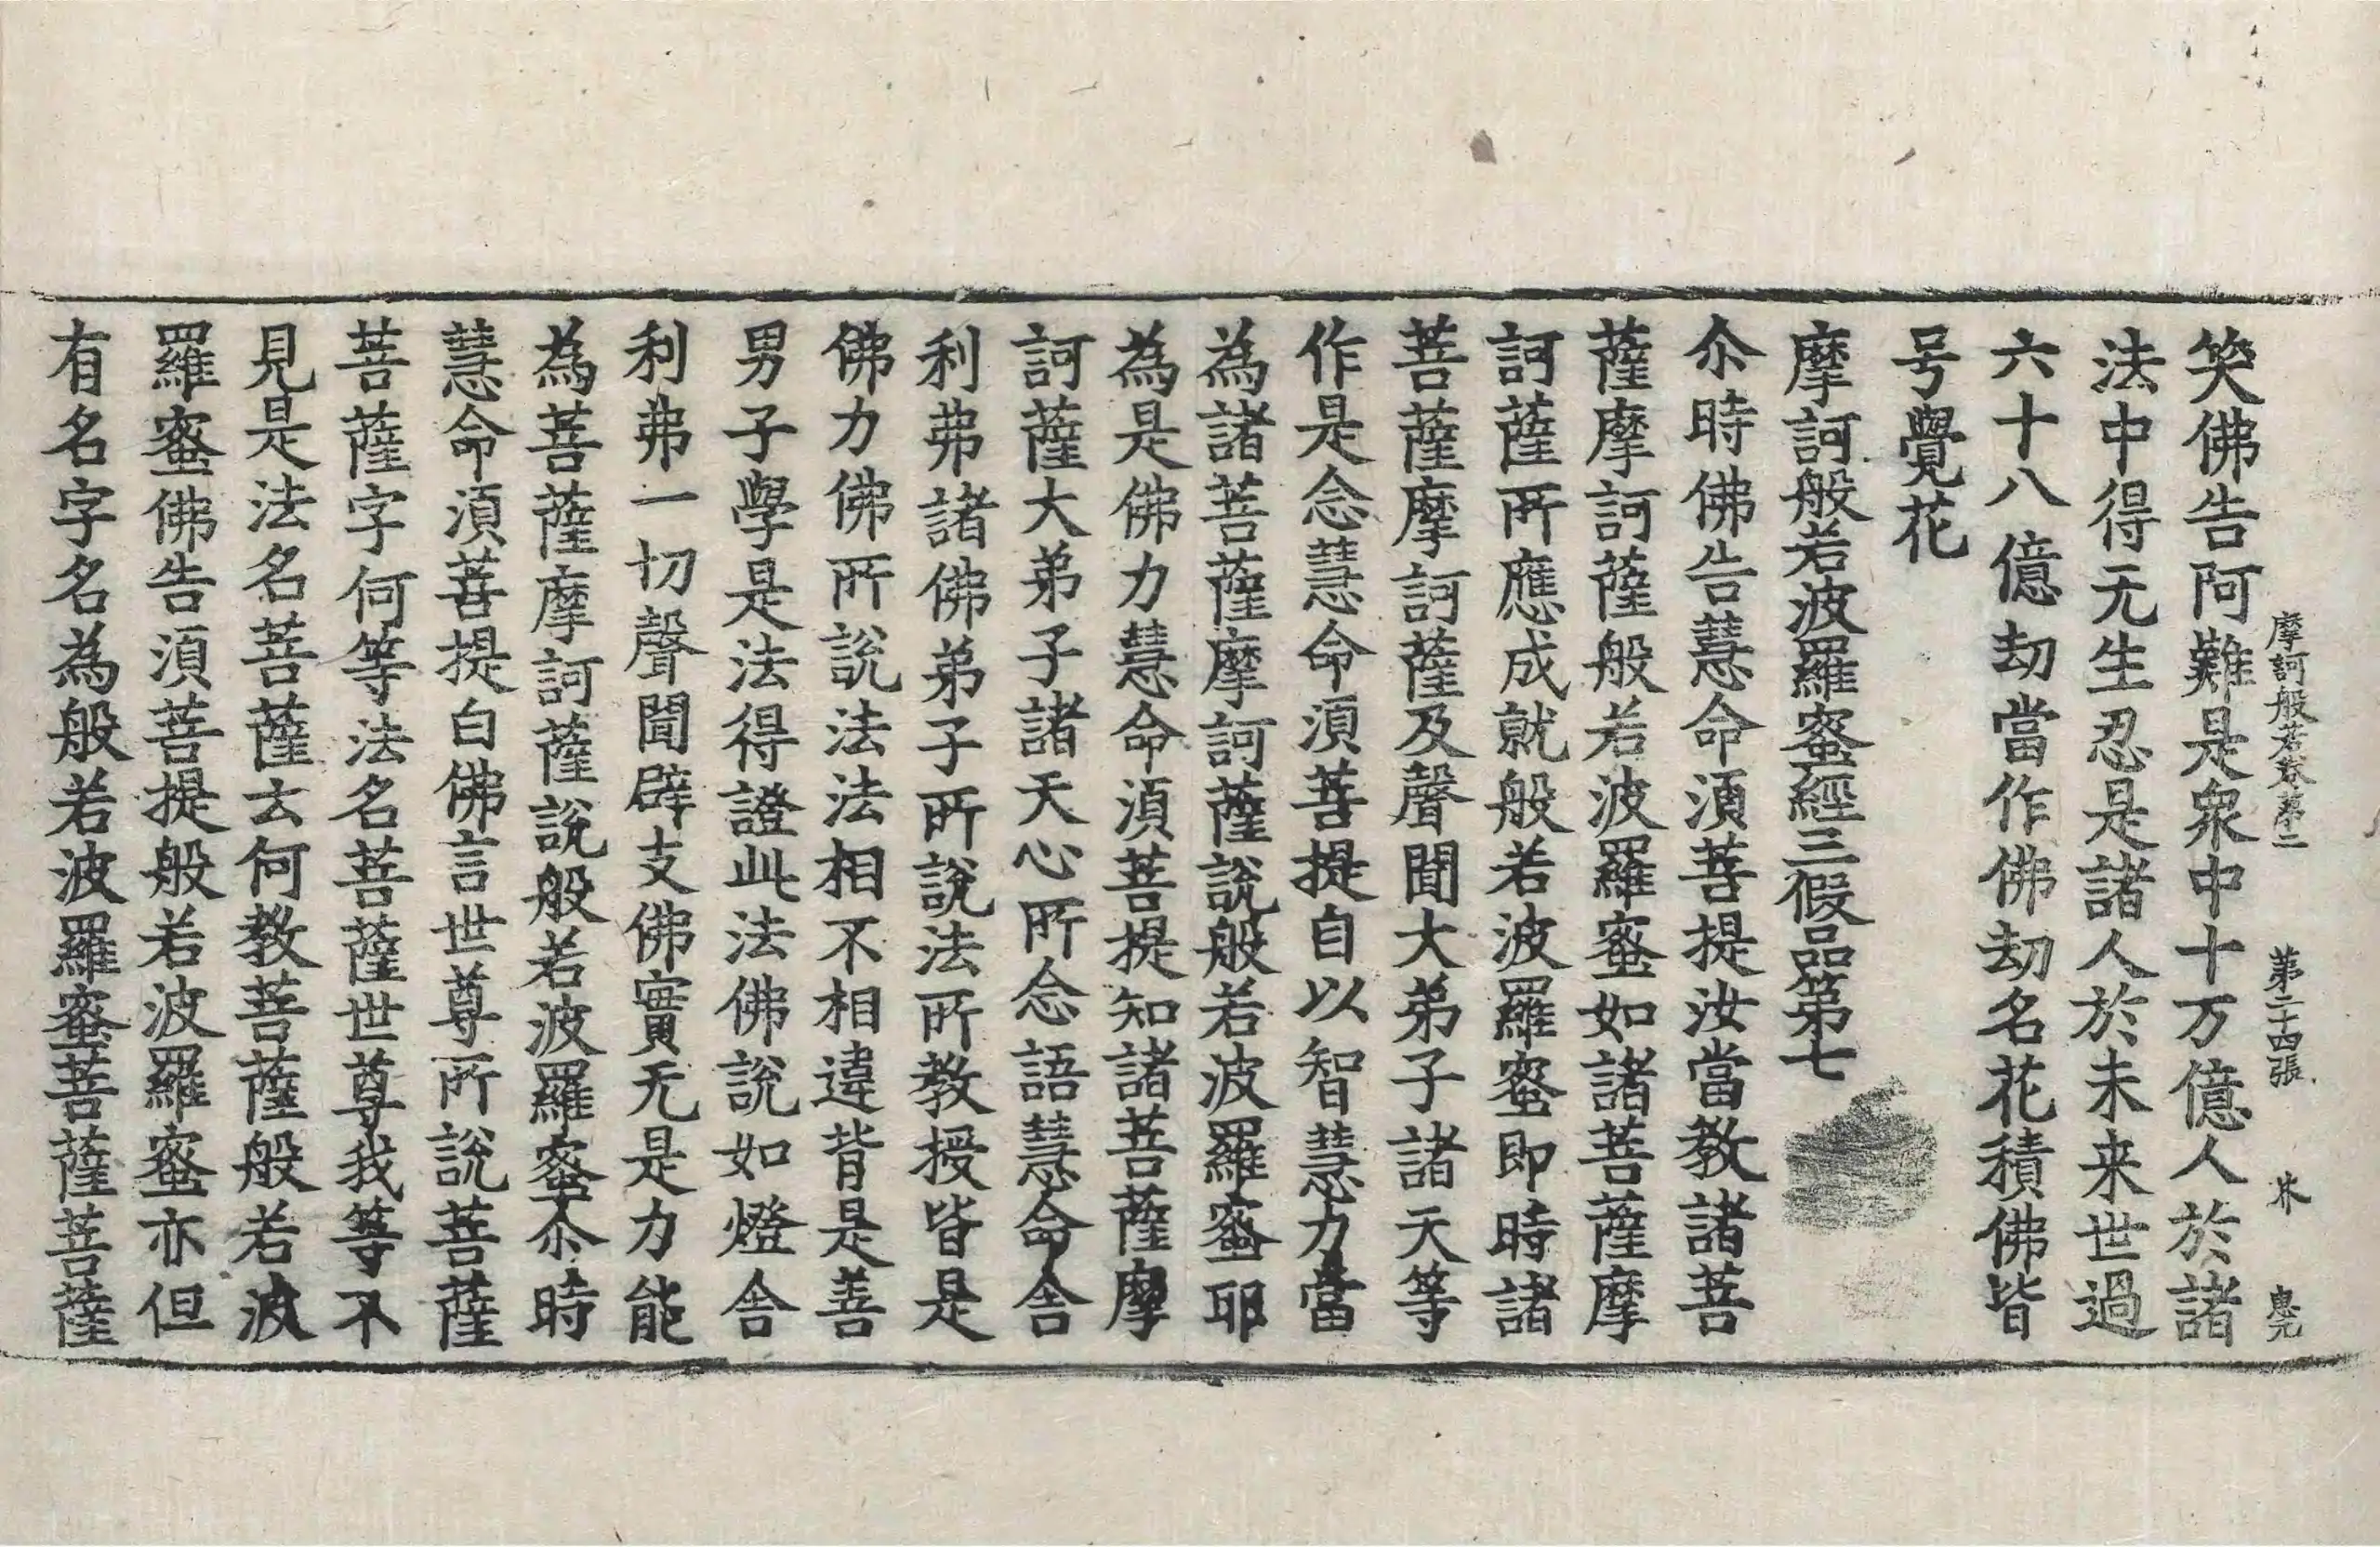 摩訶般若卷第二 第二十四張 惠先
笑佛告阿難是衆中十万億人於諸
法中得无生忍是諸人於未来世過
六十八億劫當作佛劫名花積佛皆
号覺花
摩訶般若波羅蜜經三假品第七
尒時佛告慧命湏菩提汝當教諸菩
薩摩訶薩般若波羅蜜如諸菩薩摩
訶薩所應成就般若波羅蜜即時諸
菩薩摩訶薩及聲聞大弟子諸天等
作是念慧命湏菩提自以智慧力當
為諸菩薩摩訶薩說般若波羅蜜耶
為是佛力慧命湏菩提知諸菩薩摩
訶薩大弟子諸天心所念語慧命舍
利弗諸佛弟子所說法所教授皆是
佛力佛所說法法相不相違背是善
男子學是法得證此法佛說如燈舍
利弗一切聲聞辟支佛實无是力能
為菩薩摩訶薩說般若波羅蜜尒時
慧命湏菩提白佛言世尊所說菩薩
菩薩字何等法名菩薩世尊我等不
見是法名菩薩云何教菩薩般若波
羅蜜佛告湏菩提般若波羅蜜亦但
有名字名為般若波羅蜜菩薩菩薩